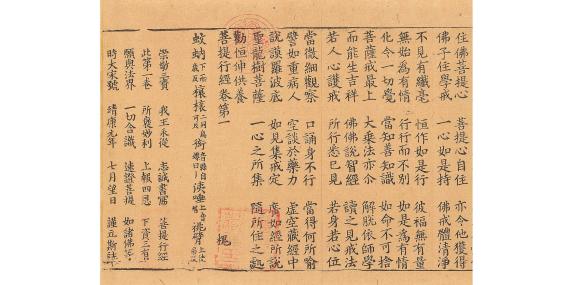 住佛菩提心 菩提心自住 亦令他獲得
佛子住學戒 一心如是持 佛戒體清淨
不見有纖毫 恒作如是行 彼福無有量
無始為有情 行行而不別 如是為有情
化令一切覺 當知善知識 如命不可捨
菩薩戒最上 大乘法亦尒 解脫依師學
而能生吉祥 佛佛說智經 讀之見戒法
若人心護戒 所行悉已見 若身若心位
當微細觀察 口誦身不行 當得何所喻
譬如重病人 空談於藥力 虛空藏經中
說謨羅波底 如見集戒定 廣如經所說
聖龍樹菩薩 一心之所集 隨所住之處
勸恒伸供養
菩提行經卷第一
蚊蚋
三寶 我王永從 志誠書寫 菩提行經
此第一卷 所裒妙利 上報四恩 下資三有
願與法界 一切含識 速證菩提 如諸佛等
時大宋號 靖康元年 七月望日 謹立斯誌